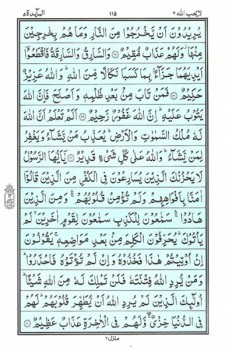 لا یحب الله ٦
١١٥
المآىدة ٥
يُرِيْدُوْنَ اَنْ يَّخْرُجُوْا مِنَ النَّارِ وَمَا هُمْ بِخٰرِجِيْنَ
مِنْهَا ۫ وَلَهُمْ عَذَابٌ مُّقِيْمٌ ۝ وَالسَّارِقُ وَالسَّارِقَةُ فَاقْطَعُوْٓا
اَيْدِيَهُمَا جَزَآءًۢ بِمَا كَسَبَا نَكَالًا مِّنَ اللّٰهِ ؕ وَاللّٰهُ عَزِيْزٌ
حَكِيْمٌ ۝ فَمَنْ تَابَ مِنْۢ بَعْدِ ظُلْمِهٖ وَاَصْلَحَ فَاِنَّ اللّٰهَ
يَتُوْبُ عَلَيْهِ ؕ اِنَّ اللّٰهَ غَفُوْرٌ رَّحِيْمٌ ۝ اَلَمْ تَعْلَمْ اَنَّ اللّٰهَ
لَهٗ مُلْكُ السَّمٰوٰتِ وَالْاَرْضِ ؕ يُعَذِّبُ مَنْ يَّشَآءُ وَيَغْفِرُ
لِمَنْ يَّشَآءُ ؕ وَاللّٰهُ عَلٰى كُلِّ شَيْءٍ قَدِيْرٌ ۝ يٰٓاَيُّهَا الرَّسُوْلُ
لَا يَحْزُنْكَ الَّذِيْنَ يُسَارِعُوْنَ فِي الْكُفْرِ مِنَ الَّذِيْنَ قَالُوْٓا
اٰمَنَّا بِاَفْوَاهِهِمْ وَلَمْ تُؤْمِنْ قُلُوْبُهُمْ ۛ وَمِنَ الَّذِيْنَ
هَادُوْا ۛ سَمّٰعُوْنَ لِلْكَذِبِ سَمّٰعُوْنَ لِقَوْمٍ اٰخَرِيْنَ ۙ لَمْ
يَاْتُوْكَ ؕ يُحَرِّفُوْنَ الْكَلِمَ مِنْۢ بَعْدِ مَوَاضِعِهٖ ۚ يَقُوْلُوْنَ
اِنْ اُوْتِيْتُمْ هٰذَا فَخُذُوْهُ وَاِنْ لَّمْ تُؤْتَوْهُ فَاحْذَرُوْا ؕ
وَمَنْ يُّرِدِ اللّٰهُ فِتْنَتَهٗ فَلَنْ تَمْلِكَ لَهٗ مِنَ اللّٰهِ شَيْـًٔا ؕ
اُولٰٓىِٕكَ الَّذِيْنَ لَمْ يُرِدِ اللّٰهُ اَنْ يُّطَهِّرَ قُلُوْبَهُمْ ؕ لَهُمْ
فِي الدُّنْيَا خِزْيٌ ۖ وَّلَهُمْ فِي الْاٰخِرَةِ عَذَابٌ عَظِيْمٌ ۝
منزل ٢